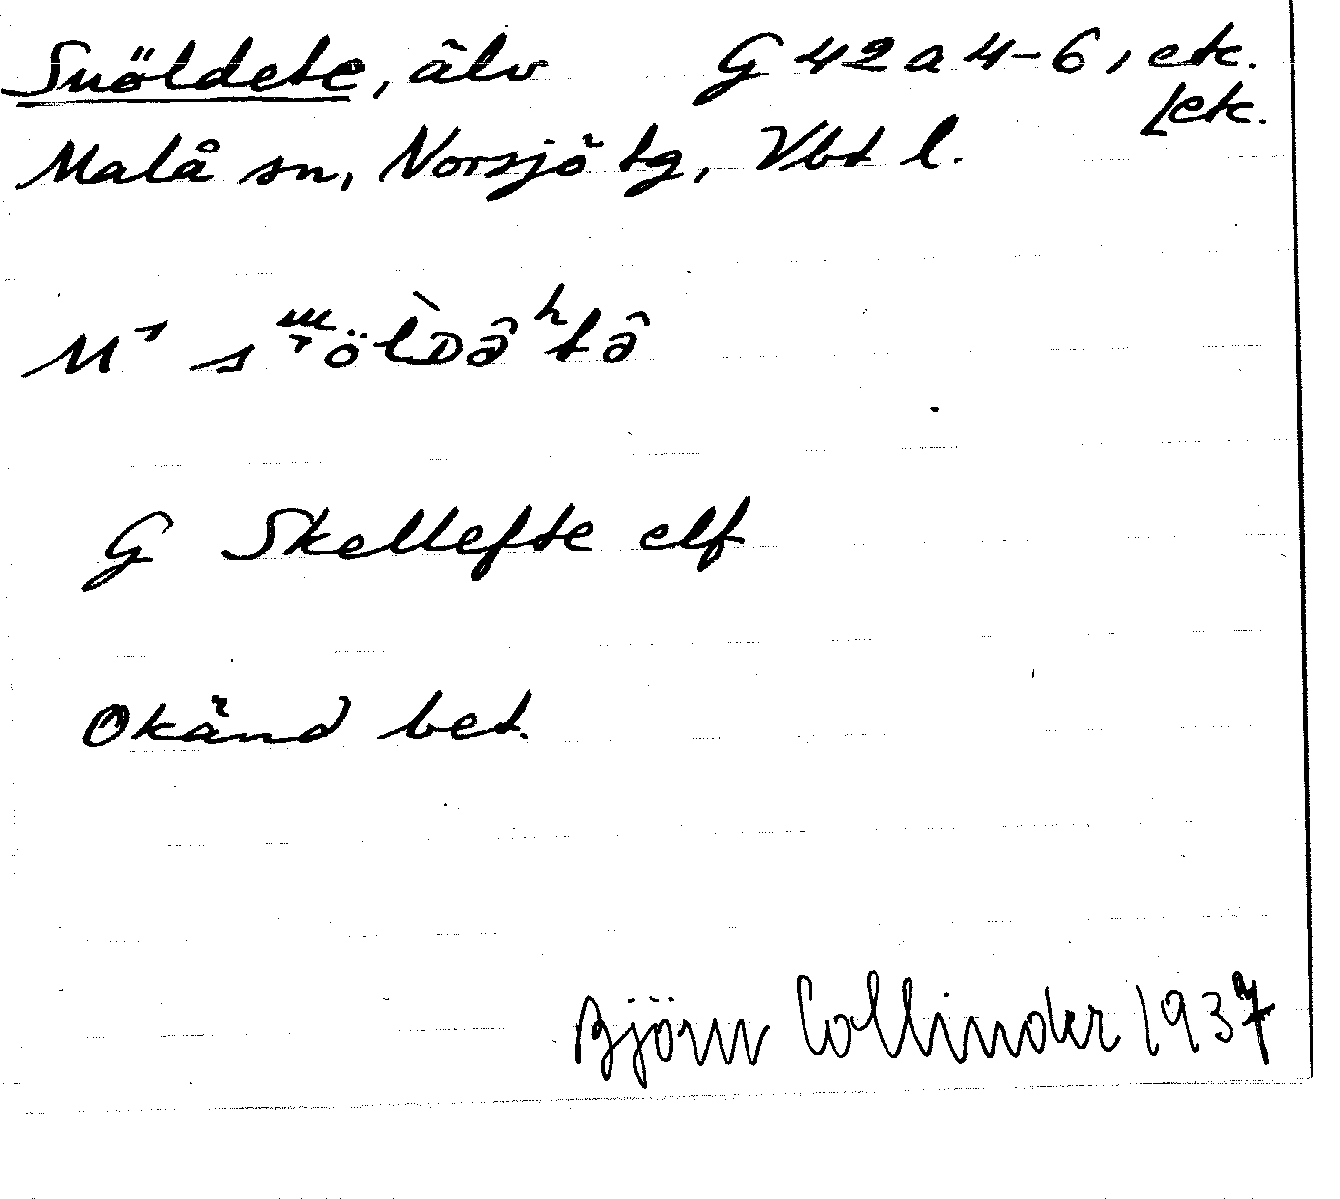 Suöldete, älv G 42 a 4-6, etc.
[etc.
Malå sn, Norsjö tg, Vbt l.
G Skellefte elf
Okänd bet.
Björn Collinder 1937